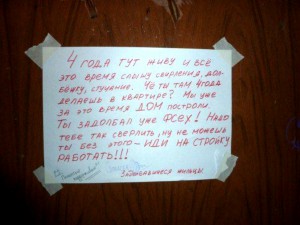 4 ГОДА ТУТ ЖИВУ И ВСЁ
ЭТО ВРЕМЯ СЛЫШУ СВЕРЛЕНИЯ, ДОЛ-
БЕЖКУ, СТУЧАНИЕ. ЧЁ ТЫ ТАМ 4 ГОДА
ДЕЛАЕШЬ В КВАРТИРЕ? МЫ УЖЕ
ЗА ЭТО ВРЕМЯ ДОМ ПОСТРОИЛИ.
ТЫ ЗАДОЛБАЛ УЖЕ ФСЕХ! НАДО
ТЕБЕ ТАК СВЕРЛИТЬ, НУ НЕ МОЖЕШЬ
ТЫ БЕЗ ЭТОГО – ИДИ НА СТРОЙКУ
РАБОТАТЬ!!!
жильцы